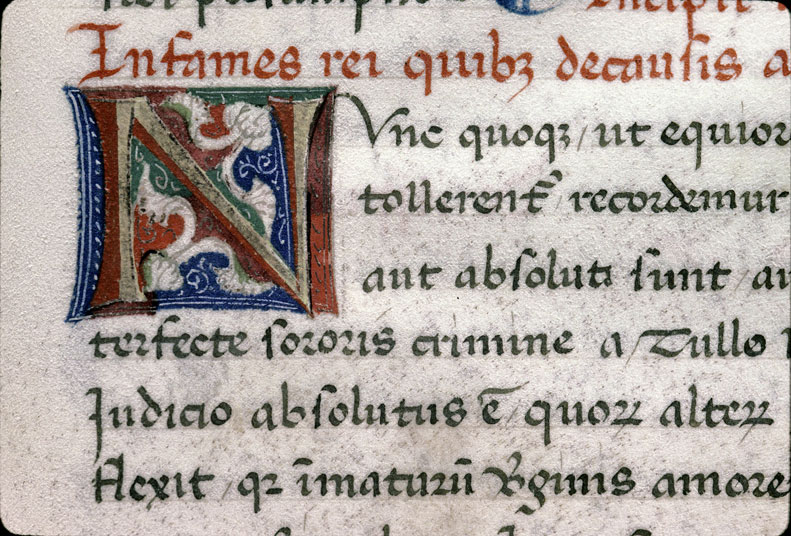 Incipit
Infames rei quibꝫ decausis a
Nvnc quoqꝫ / ut equior
tollerent᷑ / recordemur
aut absoluti sunt / au
terfecte sororis crimine a / Tullo
Judicio absolutus ē / quoꝝ alteꝝ
flexit / qꝛ īmaturū v̾ginis amore